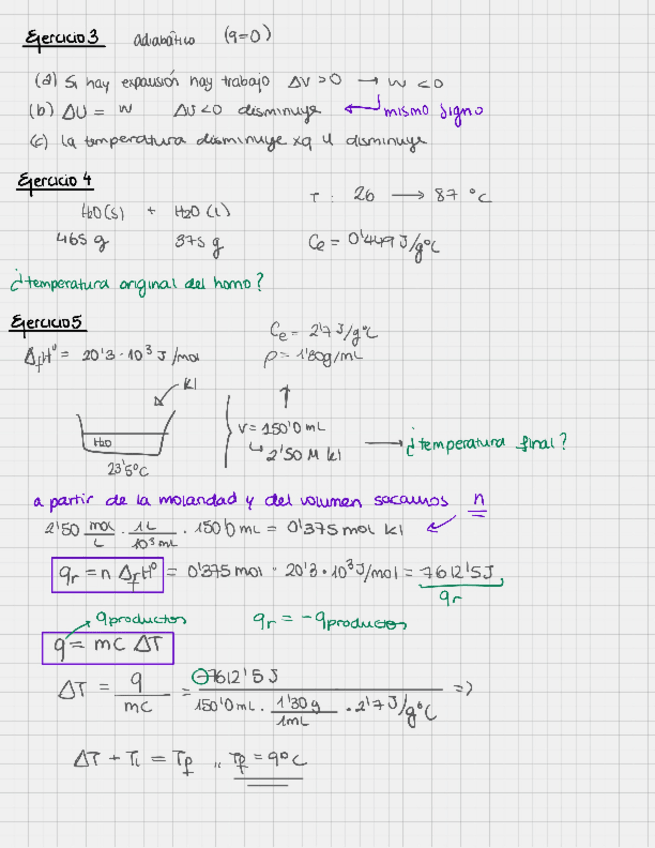 Ejercicio 3 adiabático (q=0)
(a) Si hay expansión hay trabajo ΔV>0 → W<0
(b) ΔU = W ΔU<0 disminuye ← mismo signo
(c) la temperatura disminuye xq U disminuye
Ejercicio 4
T: 26 → 87 ºC
H2O(s) + H2O(l)
465 g 375 g Ce = 0'449 J/gºC
¿temperatura original del horno?
Ejercicio 5
Ce = 2'7 J/gºC
ΔfHº = 20'3·10³ J/mol ρ = 1'30g/mL
KI
H2O
V = 150'0 mL
↳ 2'50 M KI → ¿temperatura final?
23'5ºC
a partir de la molaridad y del volumen sacamos n
2'50 mol/L · 1L/10³mL · 150'0 mL = 0'375 mol KI
qr = n ΔfHº = 0'375 mol · 20'3·10³ J/mol = 7612'5 J
qr
qproductos qr = -qproductos
q = mC ΔT
ΔT = q/mC = -7612'5 J / 150'0 mL · 1'30g/1mL · 2'7 J/gºC =>
ΔT + Ti = Tf ,, Tf = 9ºC